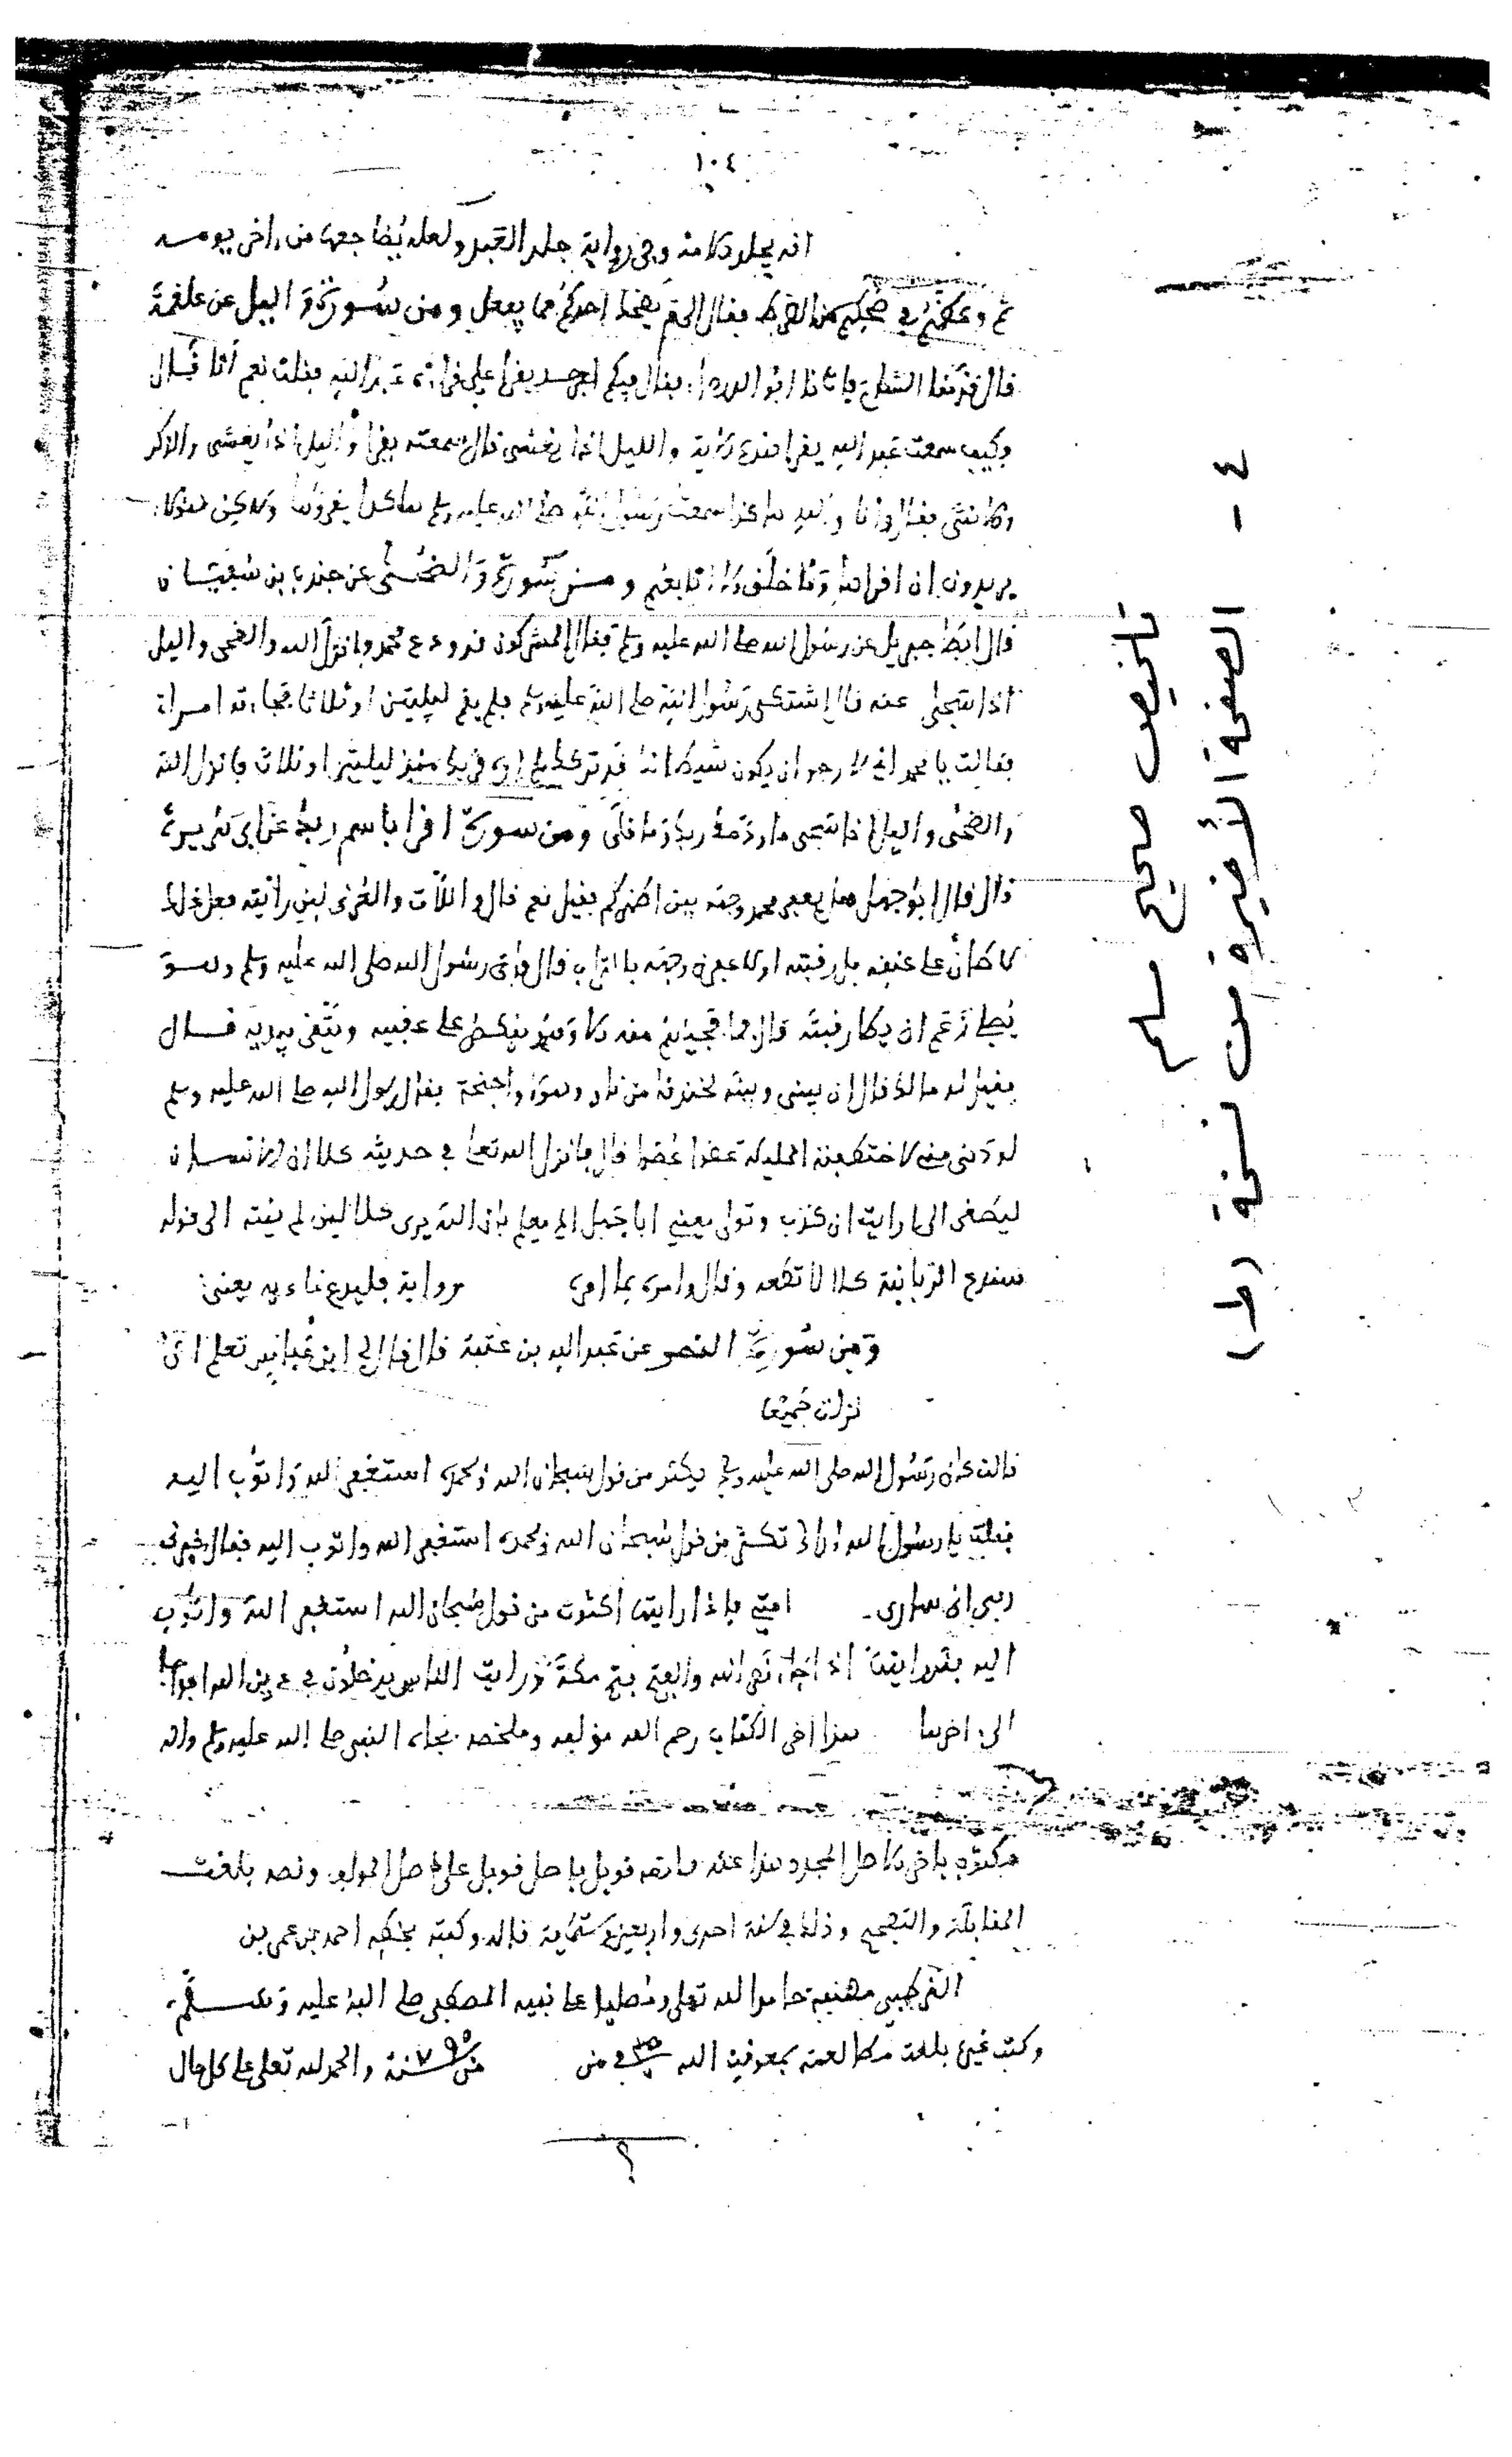 ١٠٤
امته يجلد الامة وفي رواية جلد العبد ولعله يضاجعها من اخر يومه
ثم وعظهم في ضحكهم من الضرطة فقال الام يضحك احدكم مما يفعل ومن سورة والليل عن علقمة
قال قدمنا الشام فاتانا ابو الدرداء فقال افيكم احد يقرا علي قراءة عبد الله فقلت نعم انا قال
وكيف سمعت عبد الله يقرا هذه الاية والليل اذا يغشى قال سمعته يقرا والليل اذا يغشى والذكر
والانثى فقال وانا والله هكذا سمعت رسول الله صلى الله عليه وسلم هكذا يقرؤها ولكن هؤلاء
يريدون ان اقرا وما خلق فلا اتابعهم ومن سورة والضحى عن جندب بن سفيان
قال ابطا جبريل عن رسول الله صلى الله عليه وسلم فقال المشركون قد ودع محمد فانزل الله والضحى والليل
اذا سجى عنه قال اشتكى رسول الله صلى الله عليه وسلم فلم يقم ليلتين او ثلاثا فجاءته امراة
فقالت يا محمد اني لارجو ان يكون شيطانك قد تركك لم اره قربك منذ ليلتين او ثلاث فانزل الله
والضحى والليل اذا سجى ما ودعك ربك وما قلى ومن سورة اقرا باسم ربك عن ابي هريرة
قال قال ابو جهل هل يعفر محمد وجهه بين اظهركم فقيل نعم قال واللات والعزى لين رايته يفعل ذلك
لاطان على عنقه او رقبته او لاعفرن وجهه بالتراب قال فاتى رسول الله صلى الله عليه وسلم وهو
يصلي زعم ان يطا رقبته قال فما فجيهم منه الا وهو ينكص على عقبيه ويتقي بيديه قال
فقيل له ما لك قال ان بيني وبينه لخندقا من نار وهولا واجنحة فقال رسول الله صلى الله عليه وسلم
لو دنى مني لاختطفته المليكة عضوا عضوا قال فانزل الله تعلى في حديثه كلا ان الانسان
ليطغى الى ارايت ان كذب وتولى يعني ابا جهل الم يعلم بان الله يرى كلا لين لم ينته الى قوله
سندع الزبانية كلا لا تطعه وقال وامره بما امره رواية فليدع ناديه يعني
ومن سورة النصر عن عبيد الله بن عتبة قال قال لي ابن عباس تعلم اخر
نزلت جميعا
قالت كان رسول الله صلى الله عليه وسلم يكثر من قول سبحان الله وبحمده استغفر الله واتوب اليه
فقلت يا رسول الله اراك تكثر من قول سبحان الله وبحمده استغفر الله واتوب اليه فقال خبرني
ربي اني سارى امتي فاذا رايتها اكثرت من قول سبحان الله استغفر الله واتوب
اليه فقد رايتها اذا جاء نصر الله والفتح فتح مكة ورايت الناس يدخلون في دين الله افواجا
الى اخرها هذا اخر الكتاب رحم الله مؤلفه وملخصه بجاه النبي صلى الله عليه وسلم واله
مكتوب باخر الاصل المجرد هذا عنه ما نصه قوبل باصل قوبل على اصل المولف ونصه بلغت
المقابلة والتصحيح وذلك في سنة احدى واربعين وستماية قاله وكتبه بخطه احمد بن عمر بن
القرطبي مصنفه حامدا لله تعلى ومصليا على نبيه المصطفى صلى الله عليه وسلم
والحمد لله تعلى على كل حال
٤ - الصفحة الأخيرة من نسخة (ط)
تلخيص صحيح مسلم